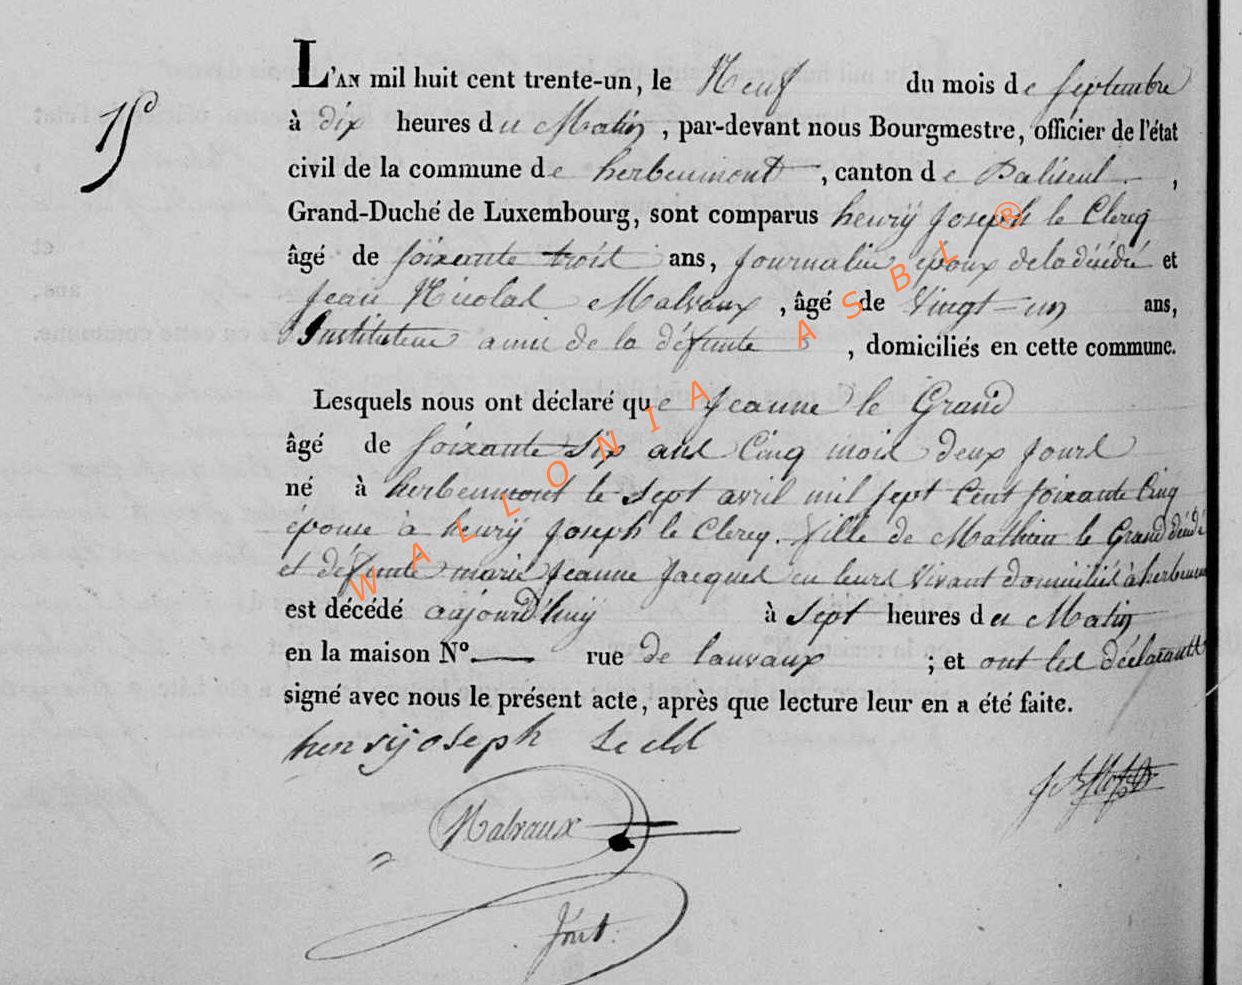 L'AN mil huit cent trente-un, le Neuf du mois de septembre
à dix heures du Matin, par-devant nous Bourgmestre, officier de l'état
civil de la commune de herbeumont, canton de Paliseul,
Grand-Duché de Luxembourg, sont comparus henrÿ Joseph le Clercq
âgé de soixante trois ans, Journalier époux de la décédée et
Jean Nicolas Malvaux, âgé de Vingt-un ans,
Instituteur amie de la défunte, domiciliés en cette commune.
Lesquels nous ont déclaré que Jeanne le Grand
âgé de soixante six ans Cinq mois deux jours
né à herbeumont le sept avril mil sept Cent soixante Cinq
épouse à henrÿ Joseph le Clercq. fille de Mathieu le Grand décédé
et défunte marie Jeanne Jacques en leurs Vivant domiciliés à herbeum
est décédé aujourd'huÿ à sept heures du Matin
en la maison N° — rue de lauvaux; et ont les déclarants
signé avec nous le présent acte, après que lecture leur en a été faite.
henrijoseph
Malvaux
WALLONIA ASBL ®